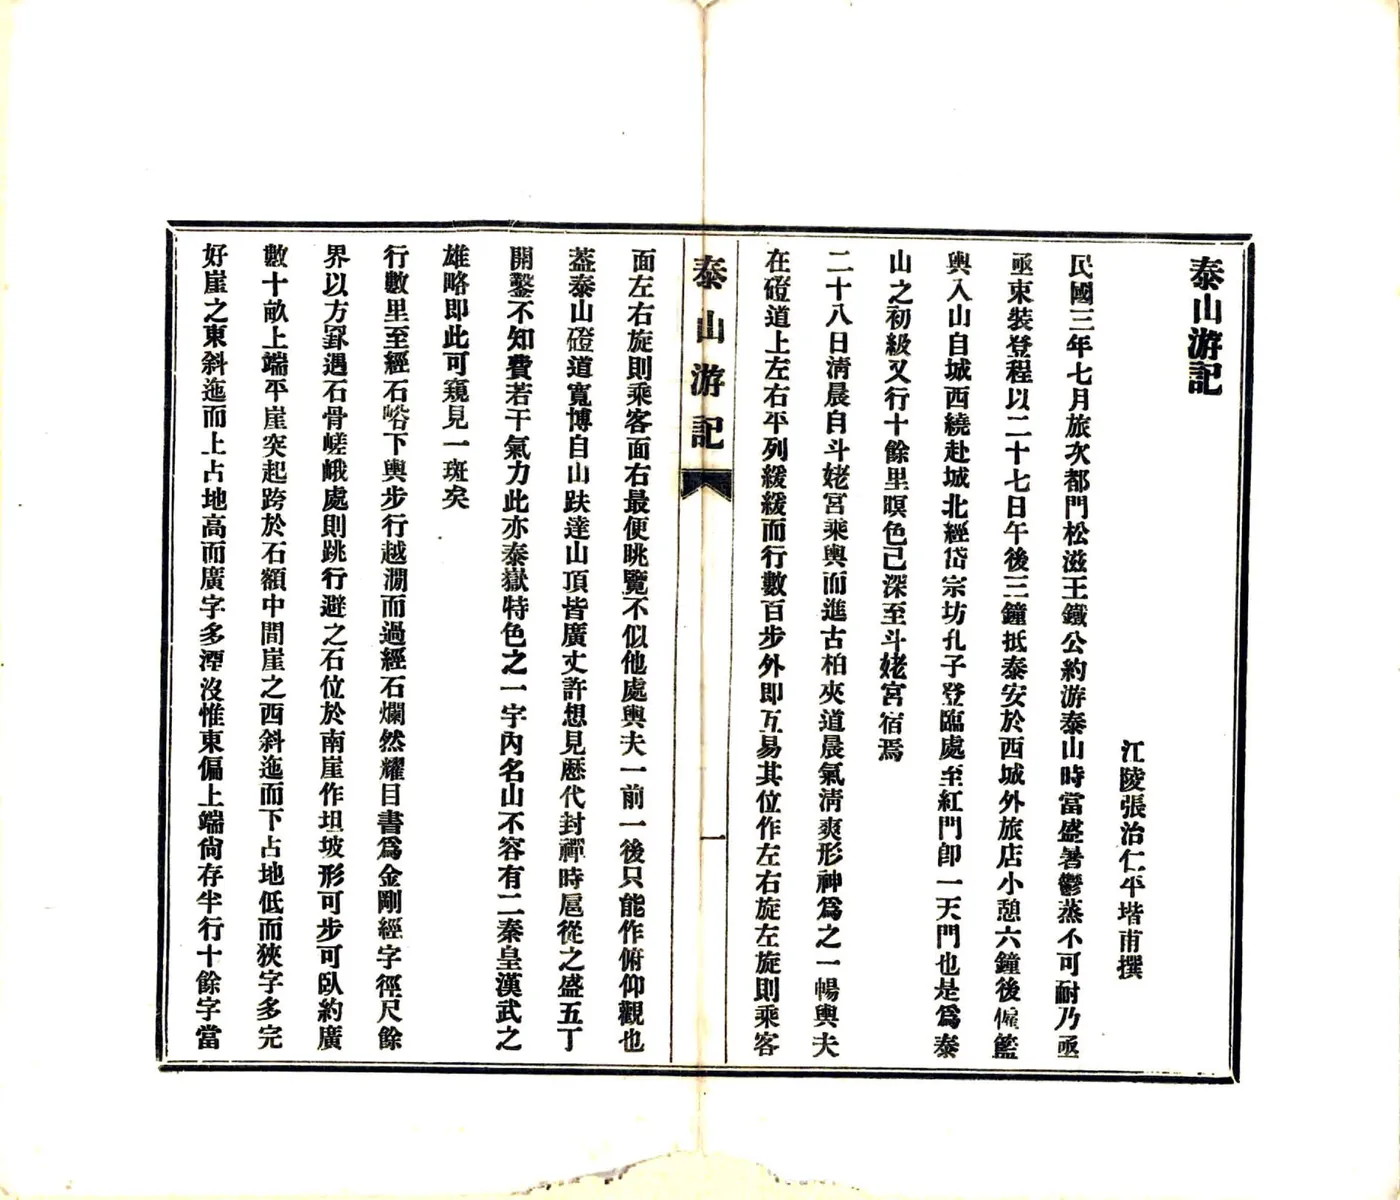 泰山游記
江陵張治仁平堦甫撰
民國三年七月旅次都門松滋王鐵公約游泰山時當盛暑鬱蒸不可耐乃亟
亟束裝登程以二十七日午後三鐘抵泰安於西城外旅店小憩六鐘後僱籃
輿入山自城西繞赴城北經岱宗坊孔子登臨處至紅門卽一天門也是爲泰
山之初級又行十餘里暝色已深至斗姥宮宿焉
二十八日淸晨自斗姥宮乘輿而進古柏夾道晨氣淸爽形神爲之一暢輿夫
在磴道上左右平列緩緩而行數百步外即互易其位作左右旋左旋則乘客
泰山游記
一
面左右旋則乘客面右最便眺覽不似他處輿夫一前一後只能作俯仰觀也
蓋泰山磴道寬博自山趺達山頂皆廣丈許想見歷代封禪時扈從之盛五丁
開鑿不知費若干氣力此亦泰嶽特色之一宇內名山不容有二秦皇漢武之
雄略即此可窺見一斑矣
行數里至經石峪下輿步行越澗而過經石爛然耀目書爲金剛經字徑尺餘
界以方罫遇石骨嵯峨處則跳行避之石位於南崖作坦坡形可步可臥約廣
數十畝上端平崖突起跨於石額中間崖之西斜迤而下占地低而狹字多完
好崖之東斜迤而上占地高而廣字多湮沒惟東偏上端尙存半行十餘字當